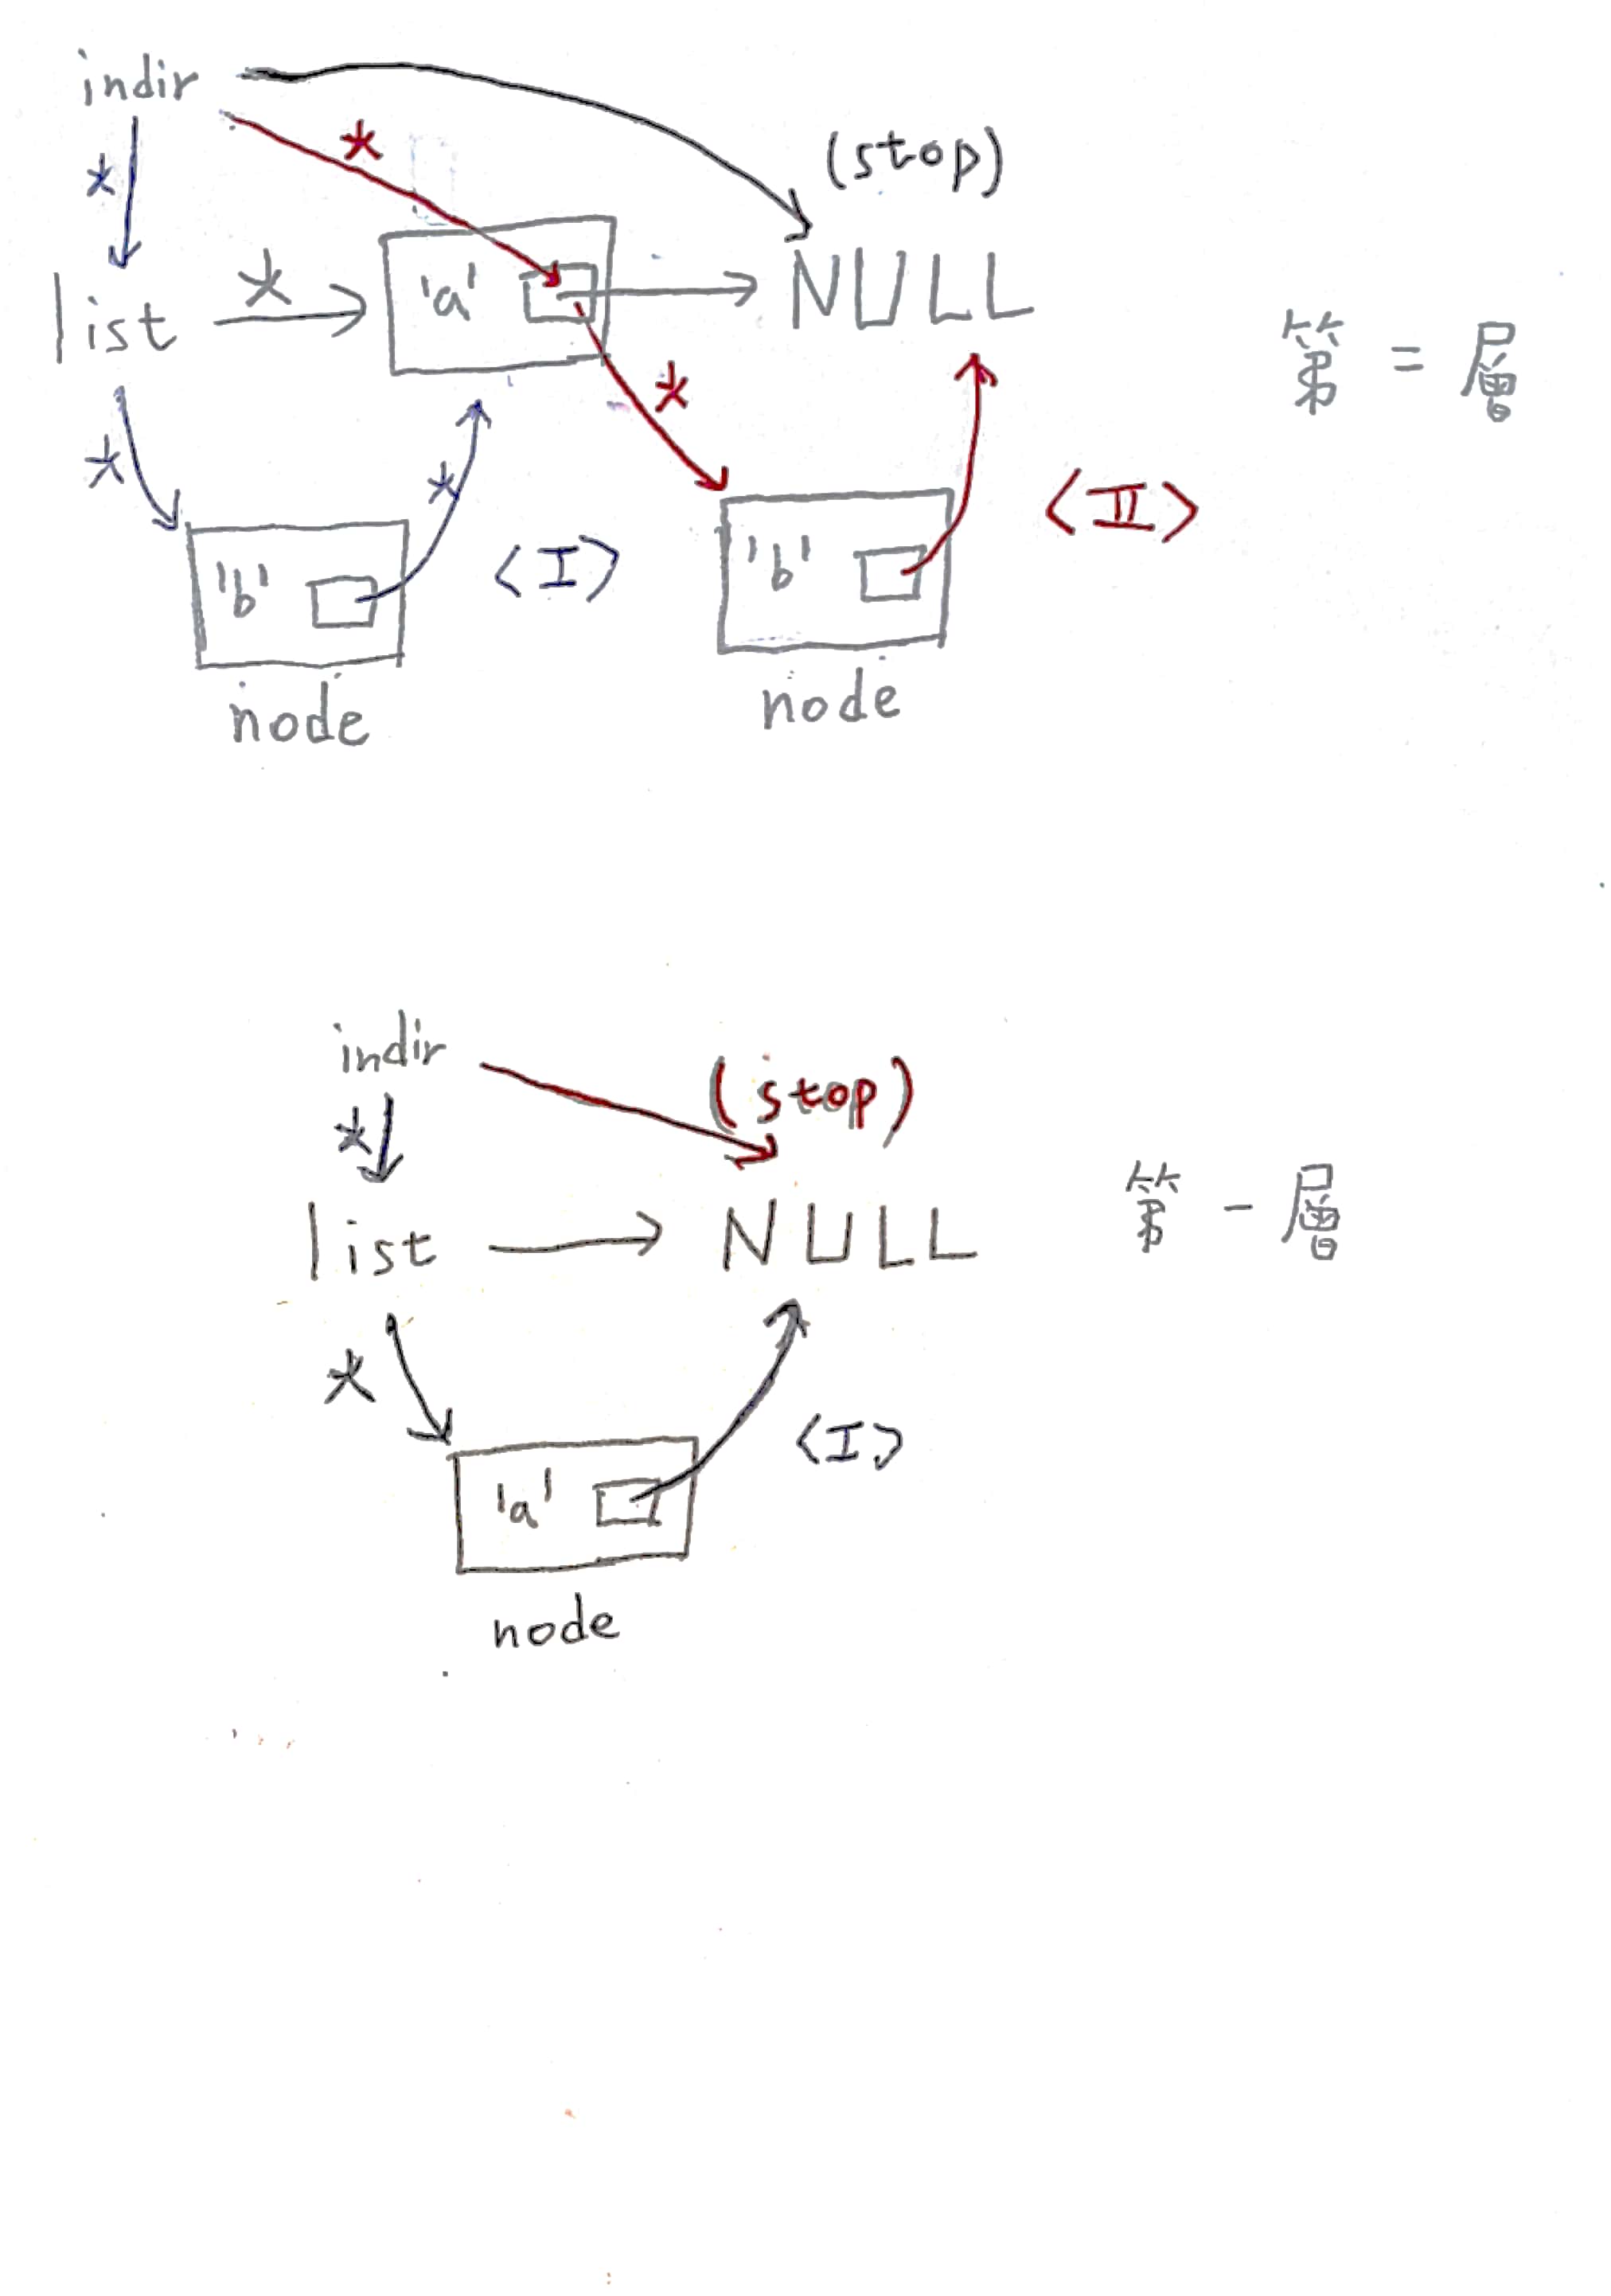 indir
*
(stop)
*
list * 'a' NULL
第二層
*
* *
'b' <I> 'b' <II>
node node
indir
(stop)
*
list NULL
第一層
*
<I>
'a'
node